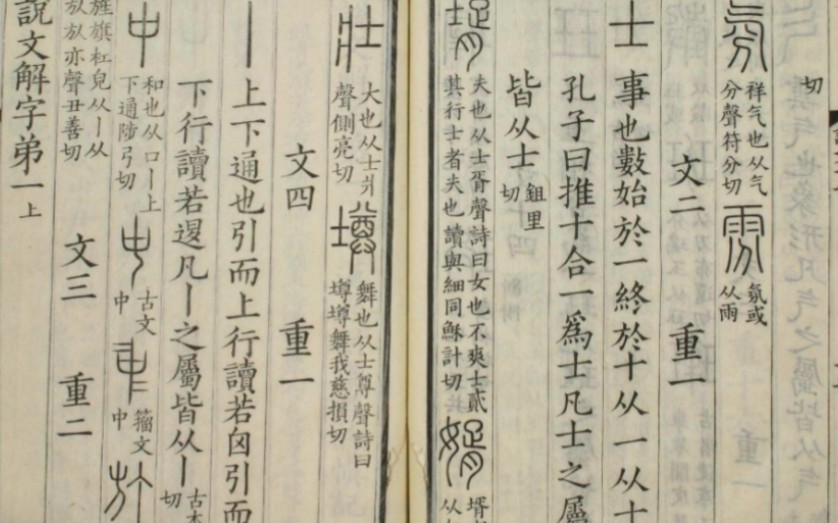 切
氛 祥气也从气
分聲符分切
雰 氛或
从雨
文二 重一
士 事也數始於一終於十从一从十
孔子曰推十合一爲士凡士之屬
皆从士 鉏里
切
壻 夫也从士胥聲詩曰女也不爽士貳
其行士者夫也讀與細同穌計切
婿 壻
从
壯 大也从士爿
聲側亮切
壿 舞也从士尊聲詩曰
壿壿舞我慈損切
文四 重一
丨 上下通也引而上行讀若囟引而
下行讀若𨓤凡丨之屬皆从丨 古本
切
中 和也从口丨上
下通陟弓切
古文
中
籒文
中
旌旗杠皃从丨从
㫃㫃亦聲丑善切
文三 重二
說文解字弟一上